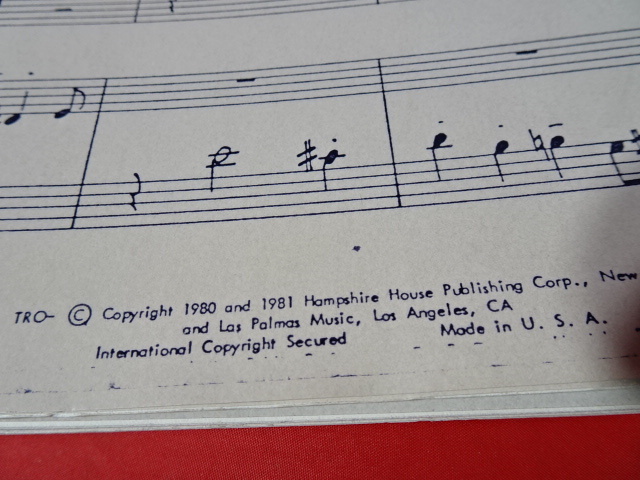 TRO- © Copyright 1980 and 1981 Hampshire House Publishing Corp., New
and Las Palmas Music, Los Angeles, CA
International Copyright Secured Made in U. S. A.